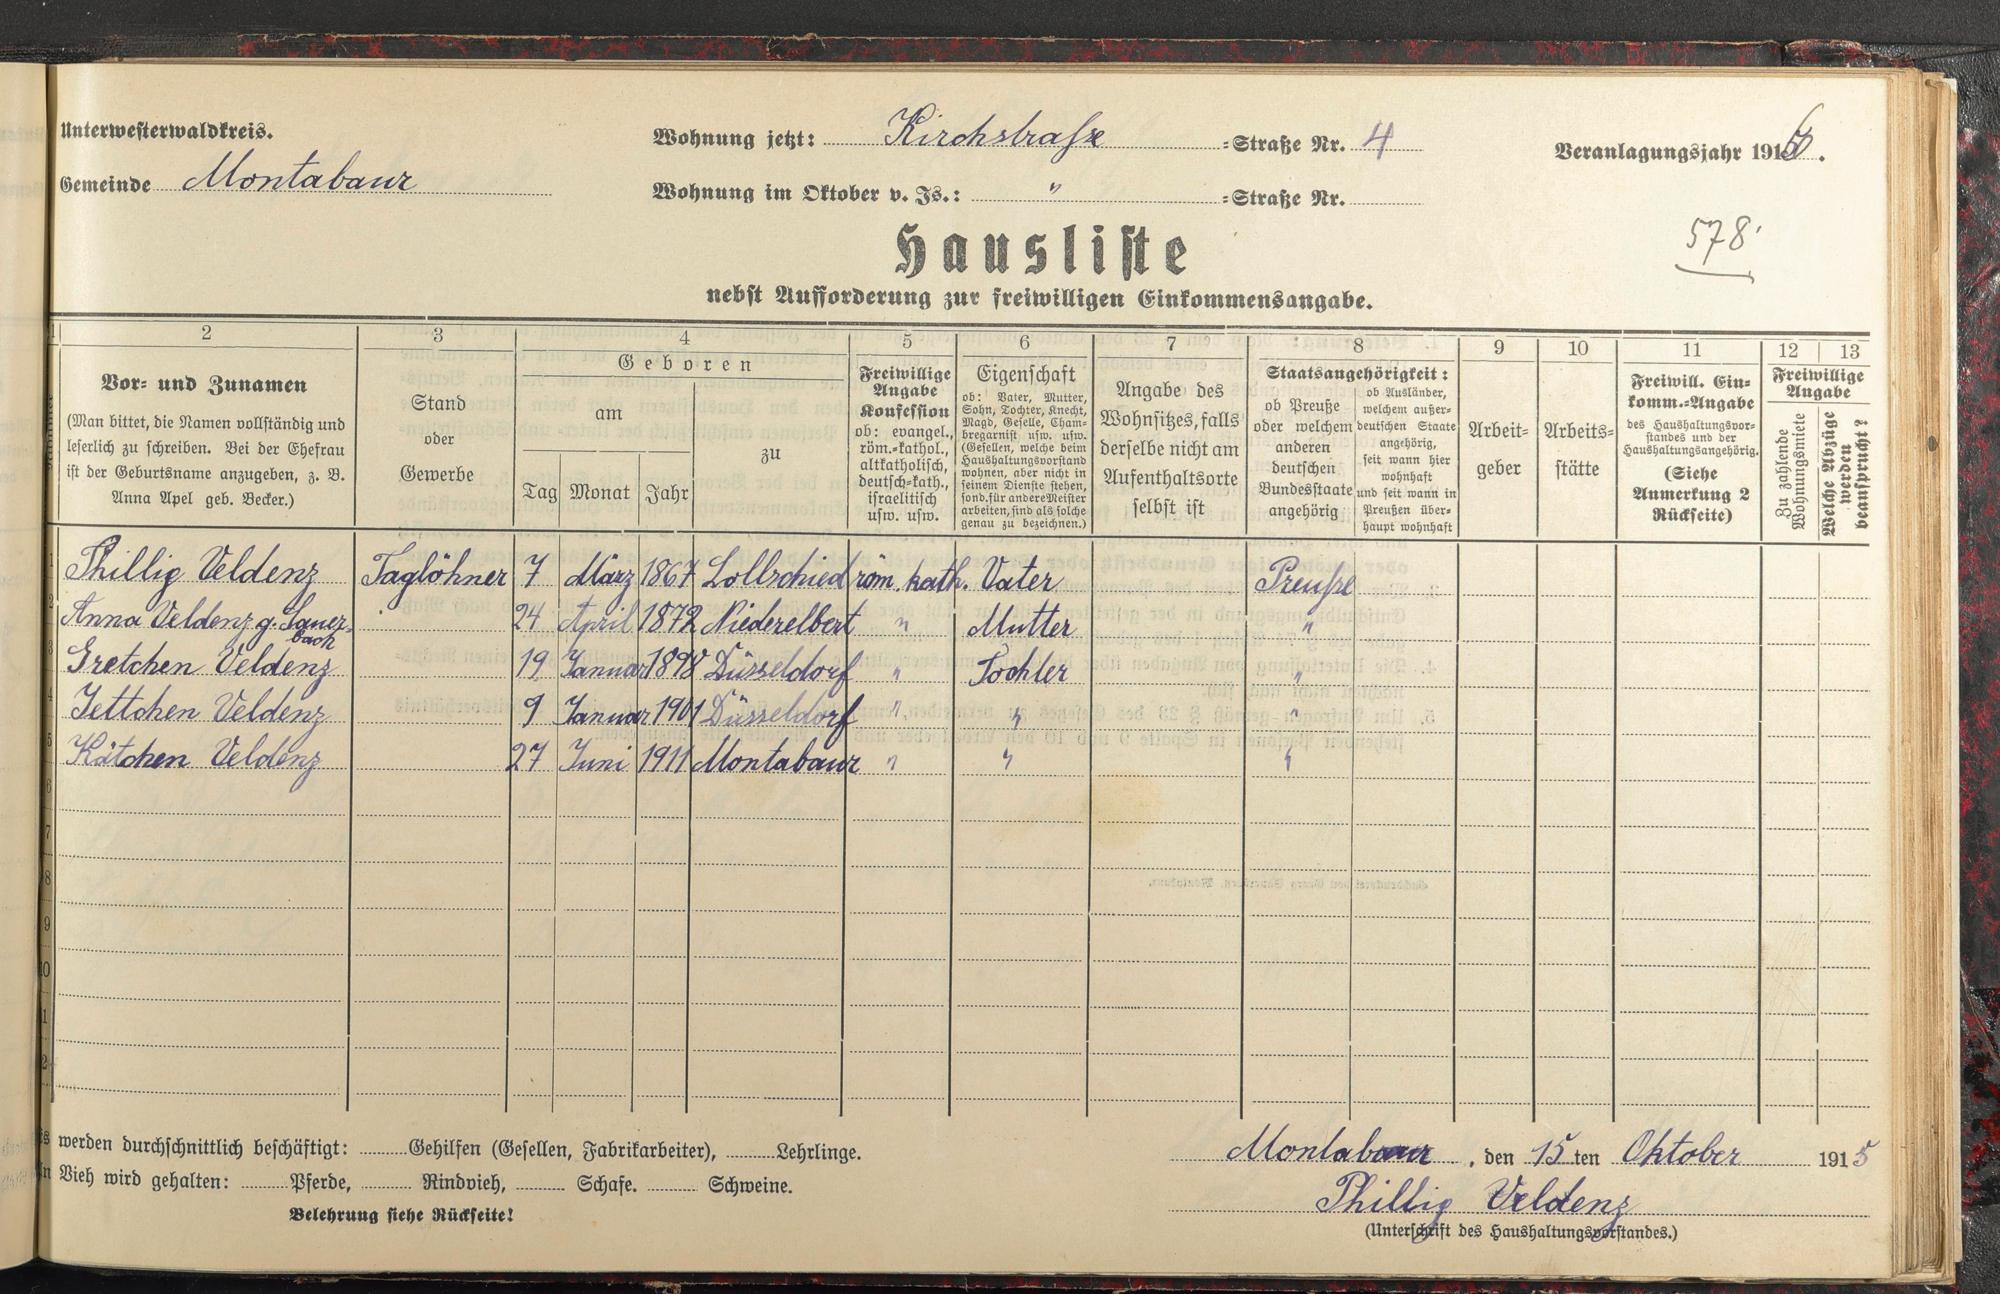 Unterwesterwaldkreis.
Gemeinde Montabaur
Wohnung jetzt: Kirchstraße =Straße Nr. 4
Wohnung im Oktober v. Js.: " =Straße Nr.
Veranlagungsjahr 1916.
578
Hausliste
nebst Aufforderung zur freiwilligen Einkommensangabe.
1 2 3 4 5 6 7 8 9 10 11 12 13
Vor- und Zunamen
(Man bittet, die Namen vollständig und
leserlich zu schreiben. Bei der Ehefrau
ist der Geburtsname anzugeben, z. B.
Anna Apel geb. Becker.)
Stand
oder
Gewerbe
Geboren
am
Tag Monat Jahr
zu
Freiwillige
Angabe
Konfession
ob: evangel.,
röm.-kathol.,
altkatholisch,
deutsch-kath.,
israelitisch
usw. usw.
Eigenschaft
ob: Vater, Mutter,
Sohn, Tochter, Knecht,
Magd, Geselle, Cham-
bregarnist usw. usw.
(Gesellen, welche beim
Haushaltungsvorstand
wohnen, aber nicht in
seinem Dienste stehen,
sond. für andere Meister
arbeiten, sind als solche
genau zu bezeichnen.)
Angabe des
Wohnsitzes, falls
derselbe nicht am
Aufenthaltsorte
selbst ist
Staatsangehörigkeit:
ob Preuße
oder welchem
anderen
deutschen
Bundesstaate
angehörig
ob Ausländer,
welchem außer-
deutschen Staate
angehörig,
seit wann hier
wohnhaft
und seit wann in
Preußen über-
haupt wohnhaft
Arbeit-
geber
Arbeits-
stätte
Freiwill. Ein-
komm.-Angabe
des Haushaltungsvor-
standes und der
Haushaltungsangehörig.
(Siehe
Anmerkung 2
Rückseite)
Freiwillige
Angabe
Zu zahlende
Wohnungsmiete
Welche Abzüge
werden
beansprucht?
1 Phillip Veldenz Taglöhner 7 März 1867 Lollschied röm. kath. Vater Preuße
2 Anna Veldenz g. Sauer- 24 April 1872 Niederelbert " Mutter "
bach
3 Gretchen Veldenz 19 Januar 1898 Düsseldorf " Tochter "
4 Jettchen Veldenz 9 Januar 1901 Düsseldorf " " "
5 Kätchen Veldenz 27 Juni 1911 Montabaur " " "
6
7
8
9
10
1
2
werden durchschnittlich beschäftigt: Gehilfen (Gesellen, Fabrikarbeiter), Lehrlinge.
Vieh wird gehalten: Pferde, Rindvieh, Schafe. Schweine.
Belehrung siehe Rückseite!
Montabaur, den 15ten Oktober 1915
Phillip Veldenz
(Unterschrift des Haushaltungsvorstandes.)